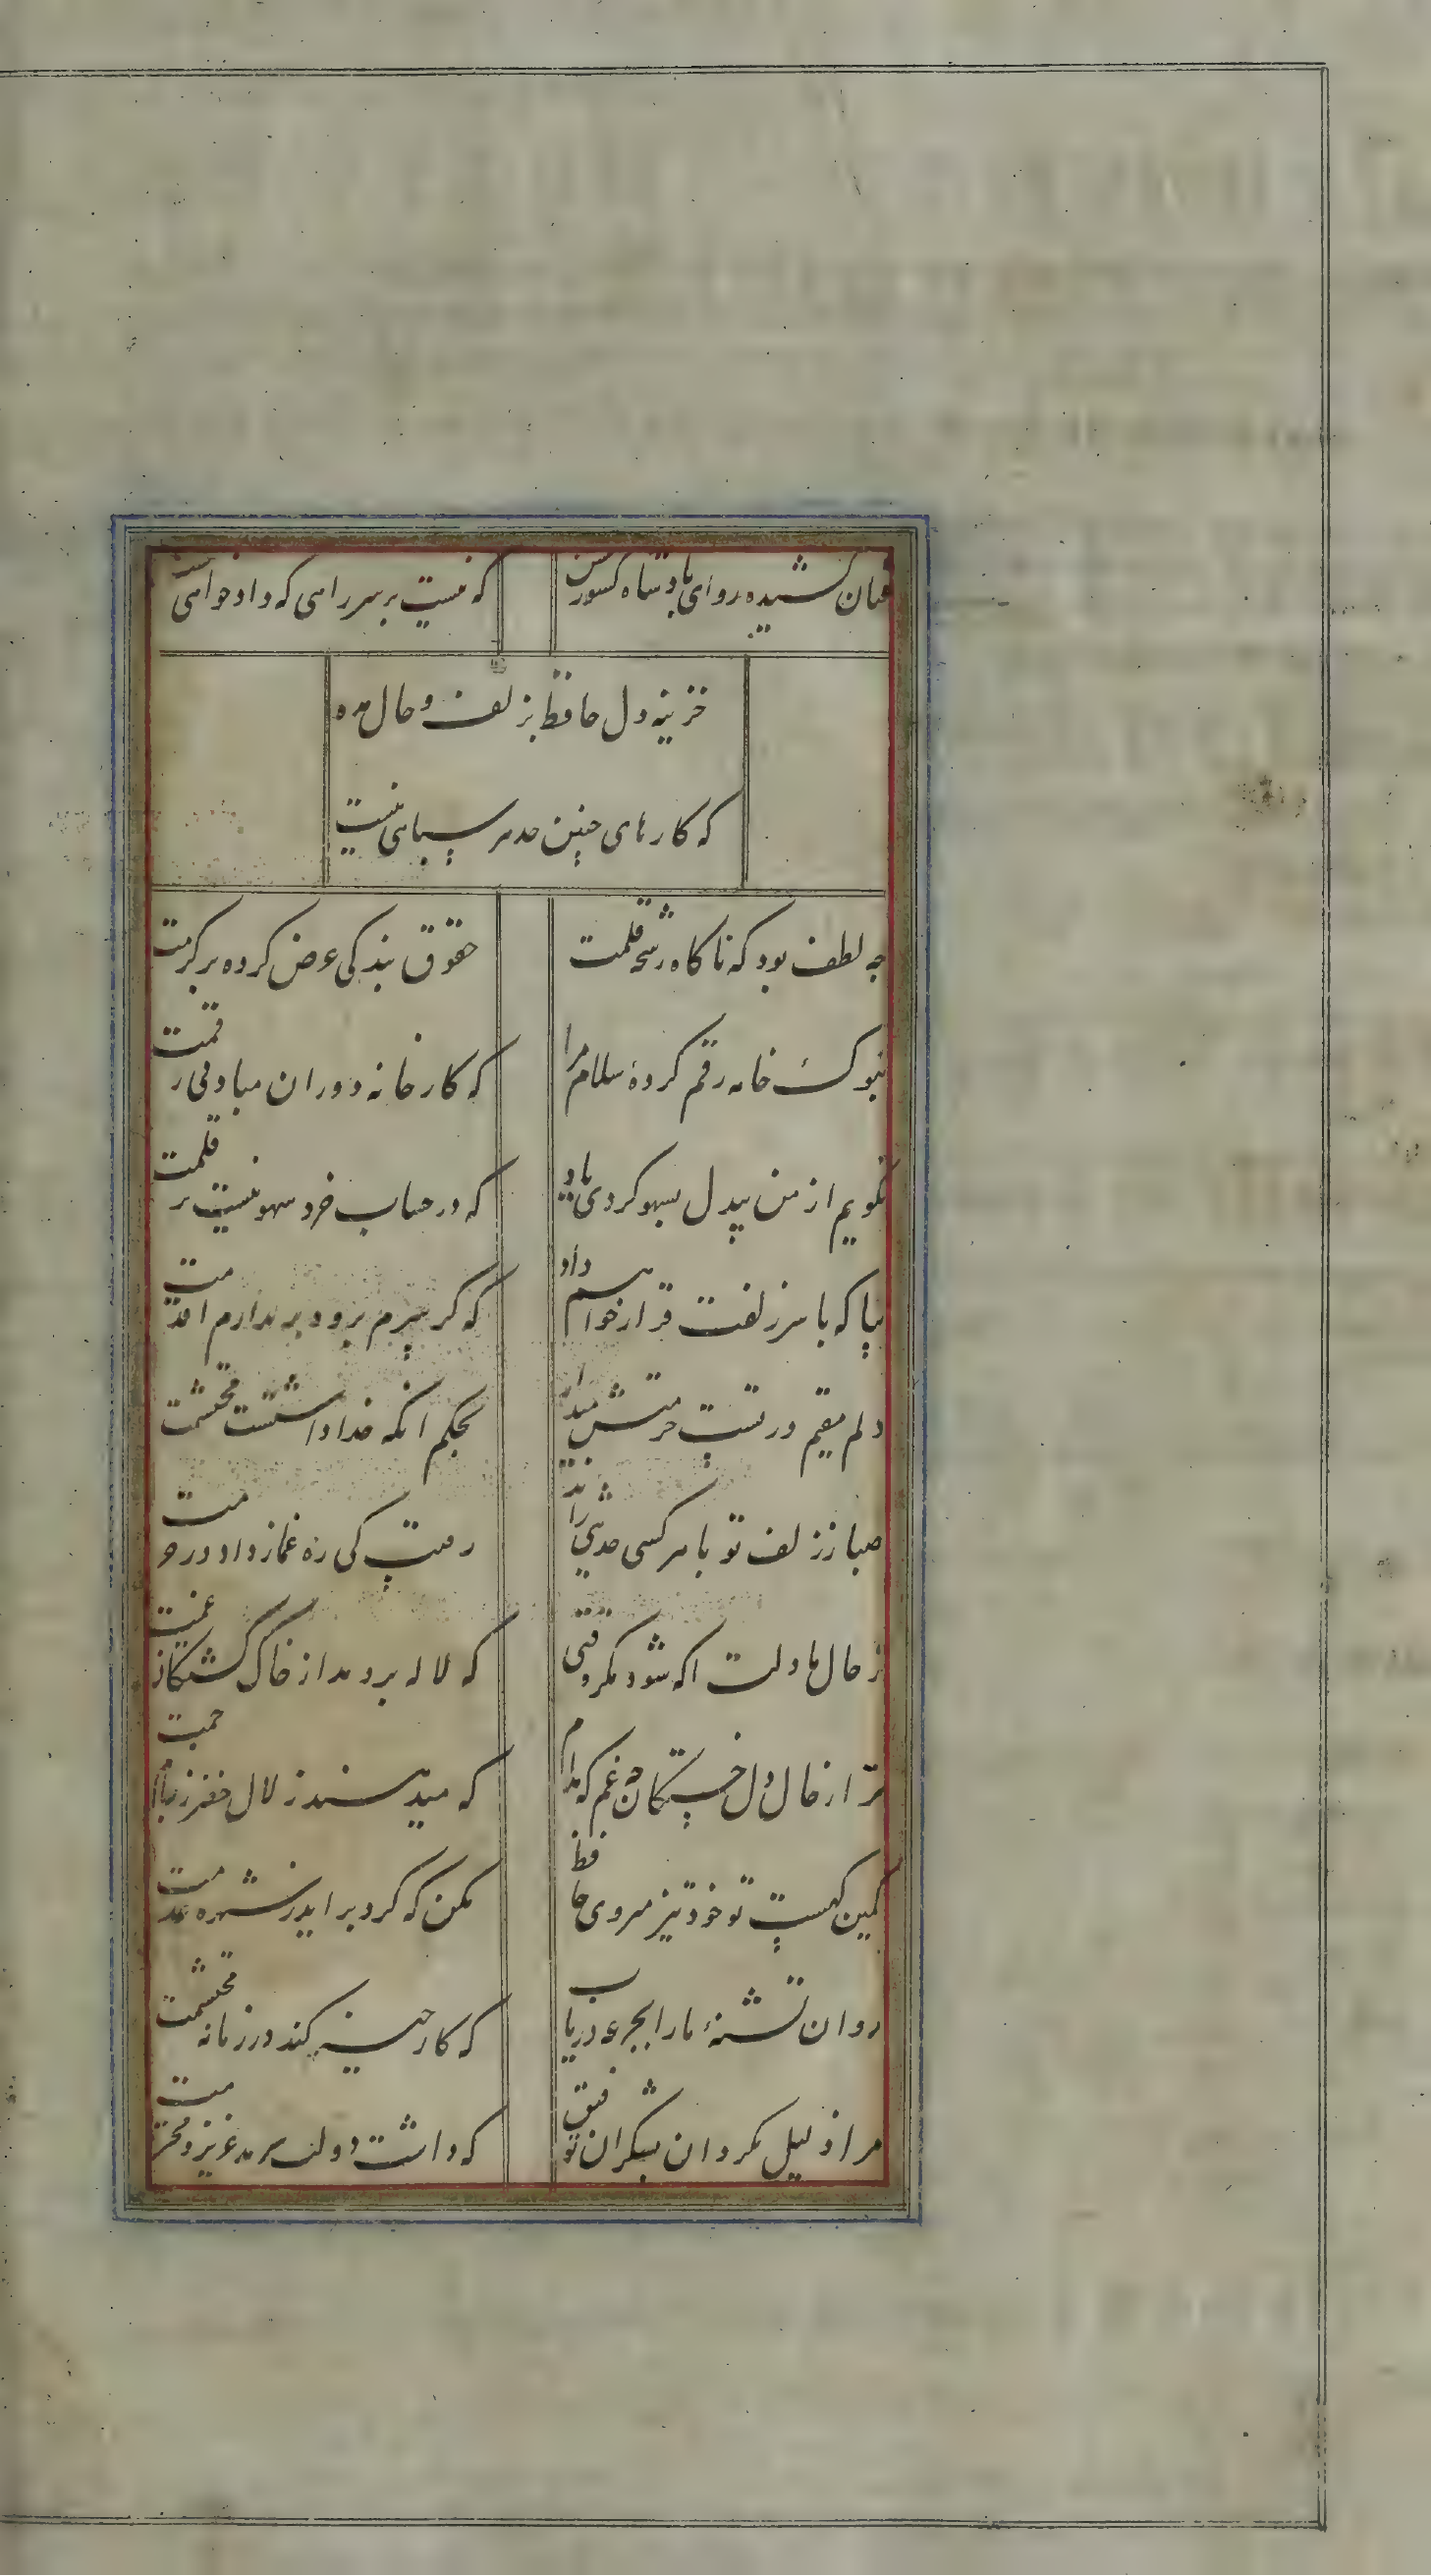 عنان کشیده رو ای پادشاه کشور حسن
که نیست بر سر راهی که دادخواهی نیست
خزینه دل حافظ بزلف و خال مده
که کارهای چنین حد هر سیاهی نیست
چه لطف بود که ناگاه رشحه قلمت
حقوق بندگی عرض کرده بر کرمت
بنوک خامه رقم کردهٔ سلام مرا
که کارخانه دوران مباد بی رقمت
نگویم از من بیدل بسهو کردی یاد
که در حساب خرد سهو نیست بر قلمت
بیا که با سر زلفت قرار خواهم داد
که گر سرم برود بر ندارم از قدمت
دلم مقیم در تست حرمتش میدار
بحکم آنکه خدا داشتست محتشمت
صبا ز زلف تو با هر کسی حدیثی راند
رقیب کی ره غماز داد در حرمت
ز حال ما دلت آگه شود مگر وقتی
که لاله بردمد از خاک کشتگان غمت
ترا ز حال دل خستگان چه غم که مدام
که میدهند زلال خضر ز جام جمت
کمین گهست تو خود تیز میروی حافظ
مکن که گرد برآید ز شهره عدمت
روان تشنهٔ ما را بجرعه دریاب
که کار خیز کند در زمانه محتشمت
مرا ذلیل مگردان بشکر این توفیق
که داشت دولت سرمد عزیز و محترمت